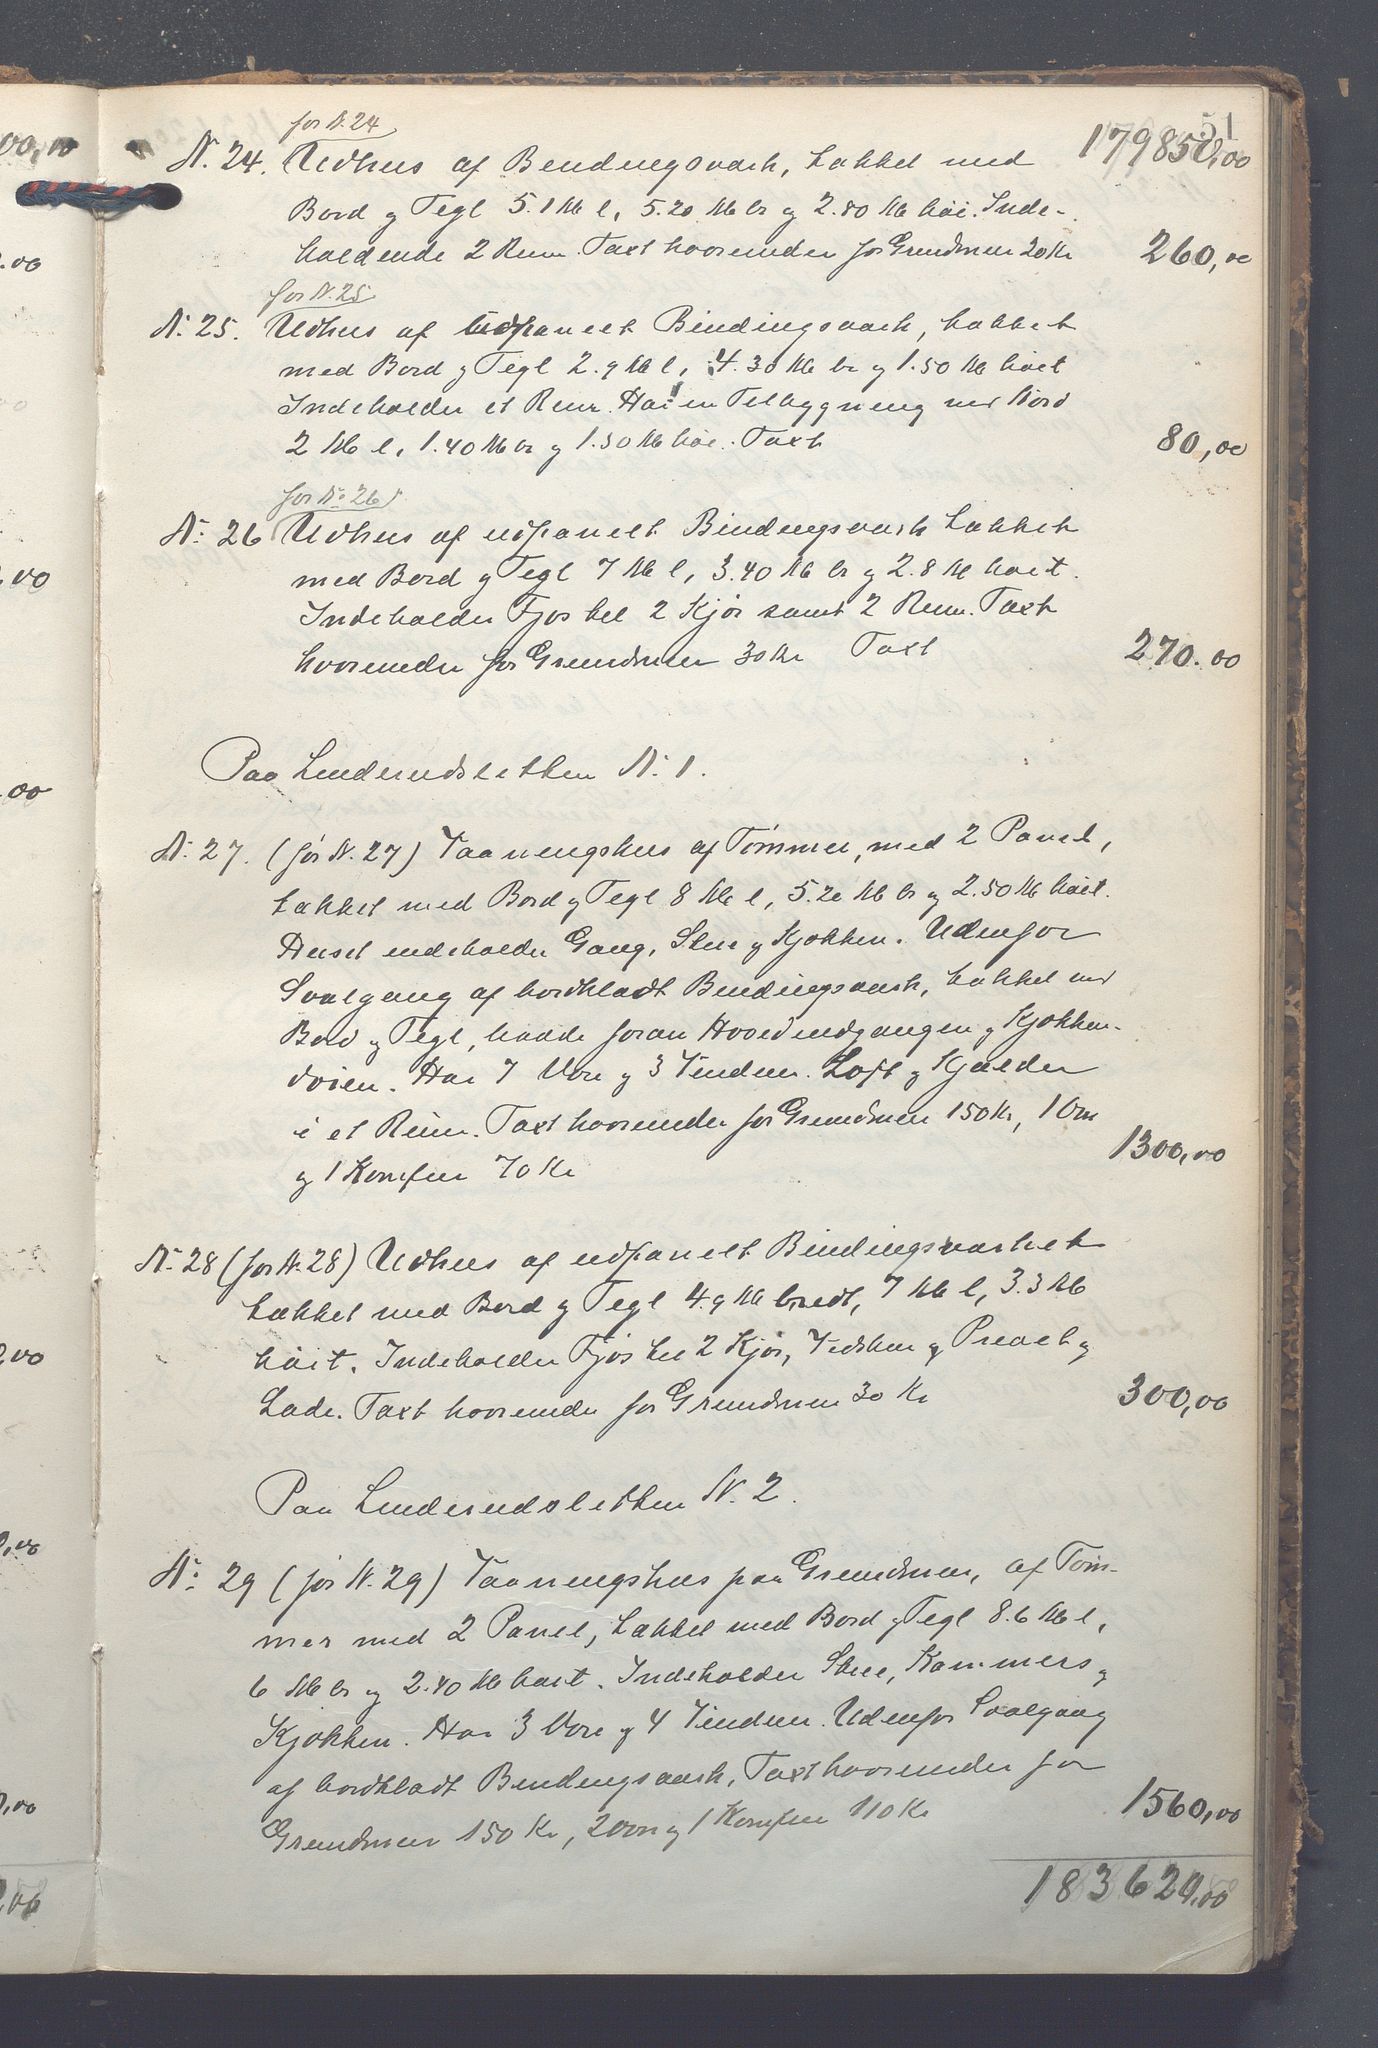 51
179850,00
for N. 24
N. 24. Udhus af Bindingsværk, tækket med
Bord og Tegl 5.1 M l, 5.20 M br og 2.80 M høi. Inde-
holdende 2 Rum. Taxt hvorunder for Grundmur 20 Kr 260,00
for N. 25
N. 25. Udhus af udpanelt Bindingsværk, tækket
med Bord og Tegl 2.9 M l, 4.30 M br og 1.50 M høit
Indeholder et Rum. Har en Tilbygning ved Nord
2 M l, 1.40 M br og 1.50 M høi. Taxt 80,00
for N. 26
N. 26 Udhus af udpanelt Bindingsværk tækket
med Bord og Tegl 7 M l, 3.40 M br og 2.8 M høit.
Indeholder Fjøs til 2 Kjør samt 2 Rum. Taxt
hvorunder for Grundmur 30 Kr Taxt 270.00
Paa Linderudsletten N. 1.
N. 27. (før N. 27) Vaaningshus af Tømmer, med 2 Panel,
tækket med Bord og Tegl 8 M l, 5.20 M br og 2.50 M høit.
Huset indeholder Gang, Stue og Kjøkken. Udenfor
Svalgang af bordklædt Bindingsværk, tækket med
Bord og Tegl, baade foran Hovedindgangen og Kjøkken-
døren. Har 7 Døre og 3 Vinduer. Loft og Kjælder
i et Rum. Taxt hvorunder for Grundmur 150 Kr, 1 Ovn
og 1 Komfur 70 Kr 1300,00
N. 28 (for N. 28) Udhus af udpanelt Bindingsværk
tækket med Bord og Tegl 4.9 M bredt, 7 M l, 3.3 M
høit. Indeholder Fjøs til 2 Kjør, Vedskur og Privet og
Lade. Taxt hvorunder for Grundmur 30 Kr 300,00
Paa Linderudsletten N. 2.
N. 29 (før N. 29) Vaaningshus paa Grundmur, af Tøm-
mer med 2 Panel, tækket med Bord og Tegl 8.6 M l,
6 M br og 2.40 M høit. Indeholder Stue, Kammers og
Kjøkken. Har 3 Døre og 4 Vinduer. Udenfor Svalgang
af bordklædt Bindingsværk. Taxt hvorunder for
Grundmur 150 Kr, 2 Ovn og 1 Komfur 110 Kr 1560,00
183620,00